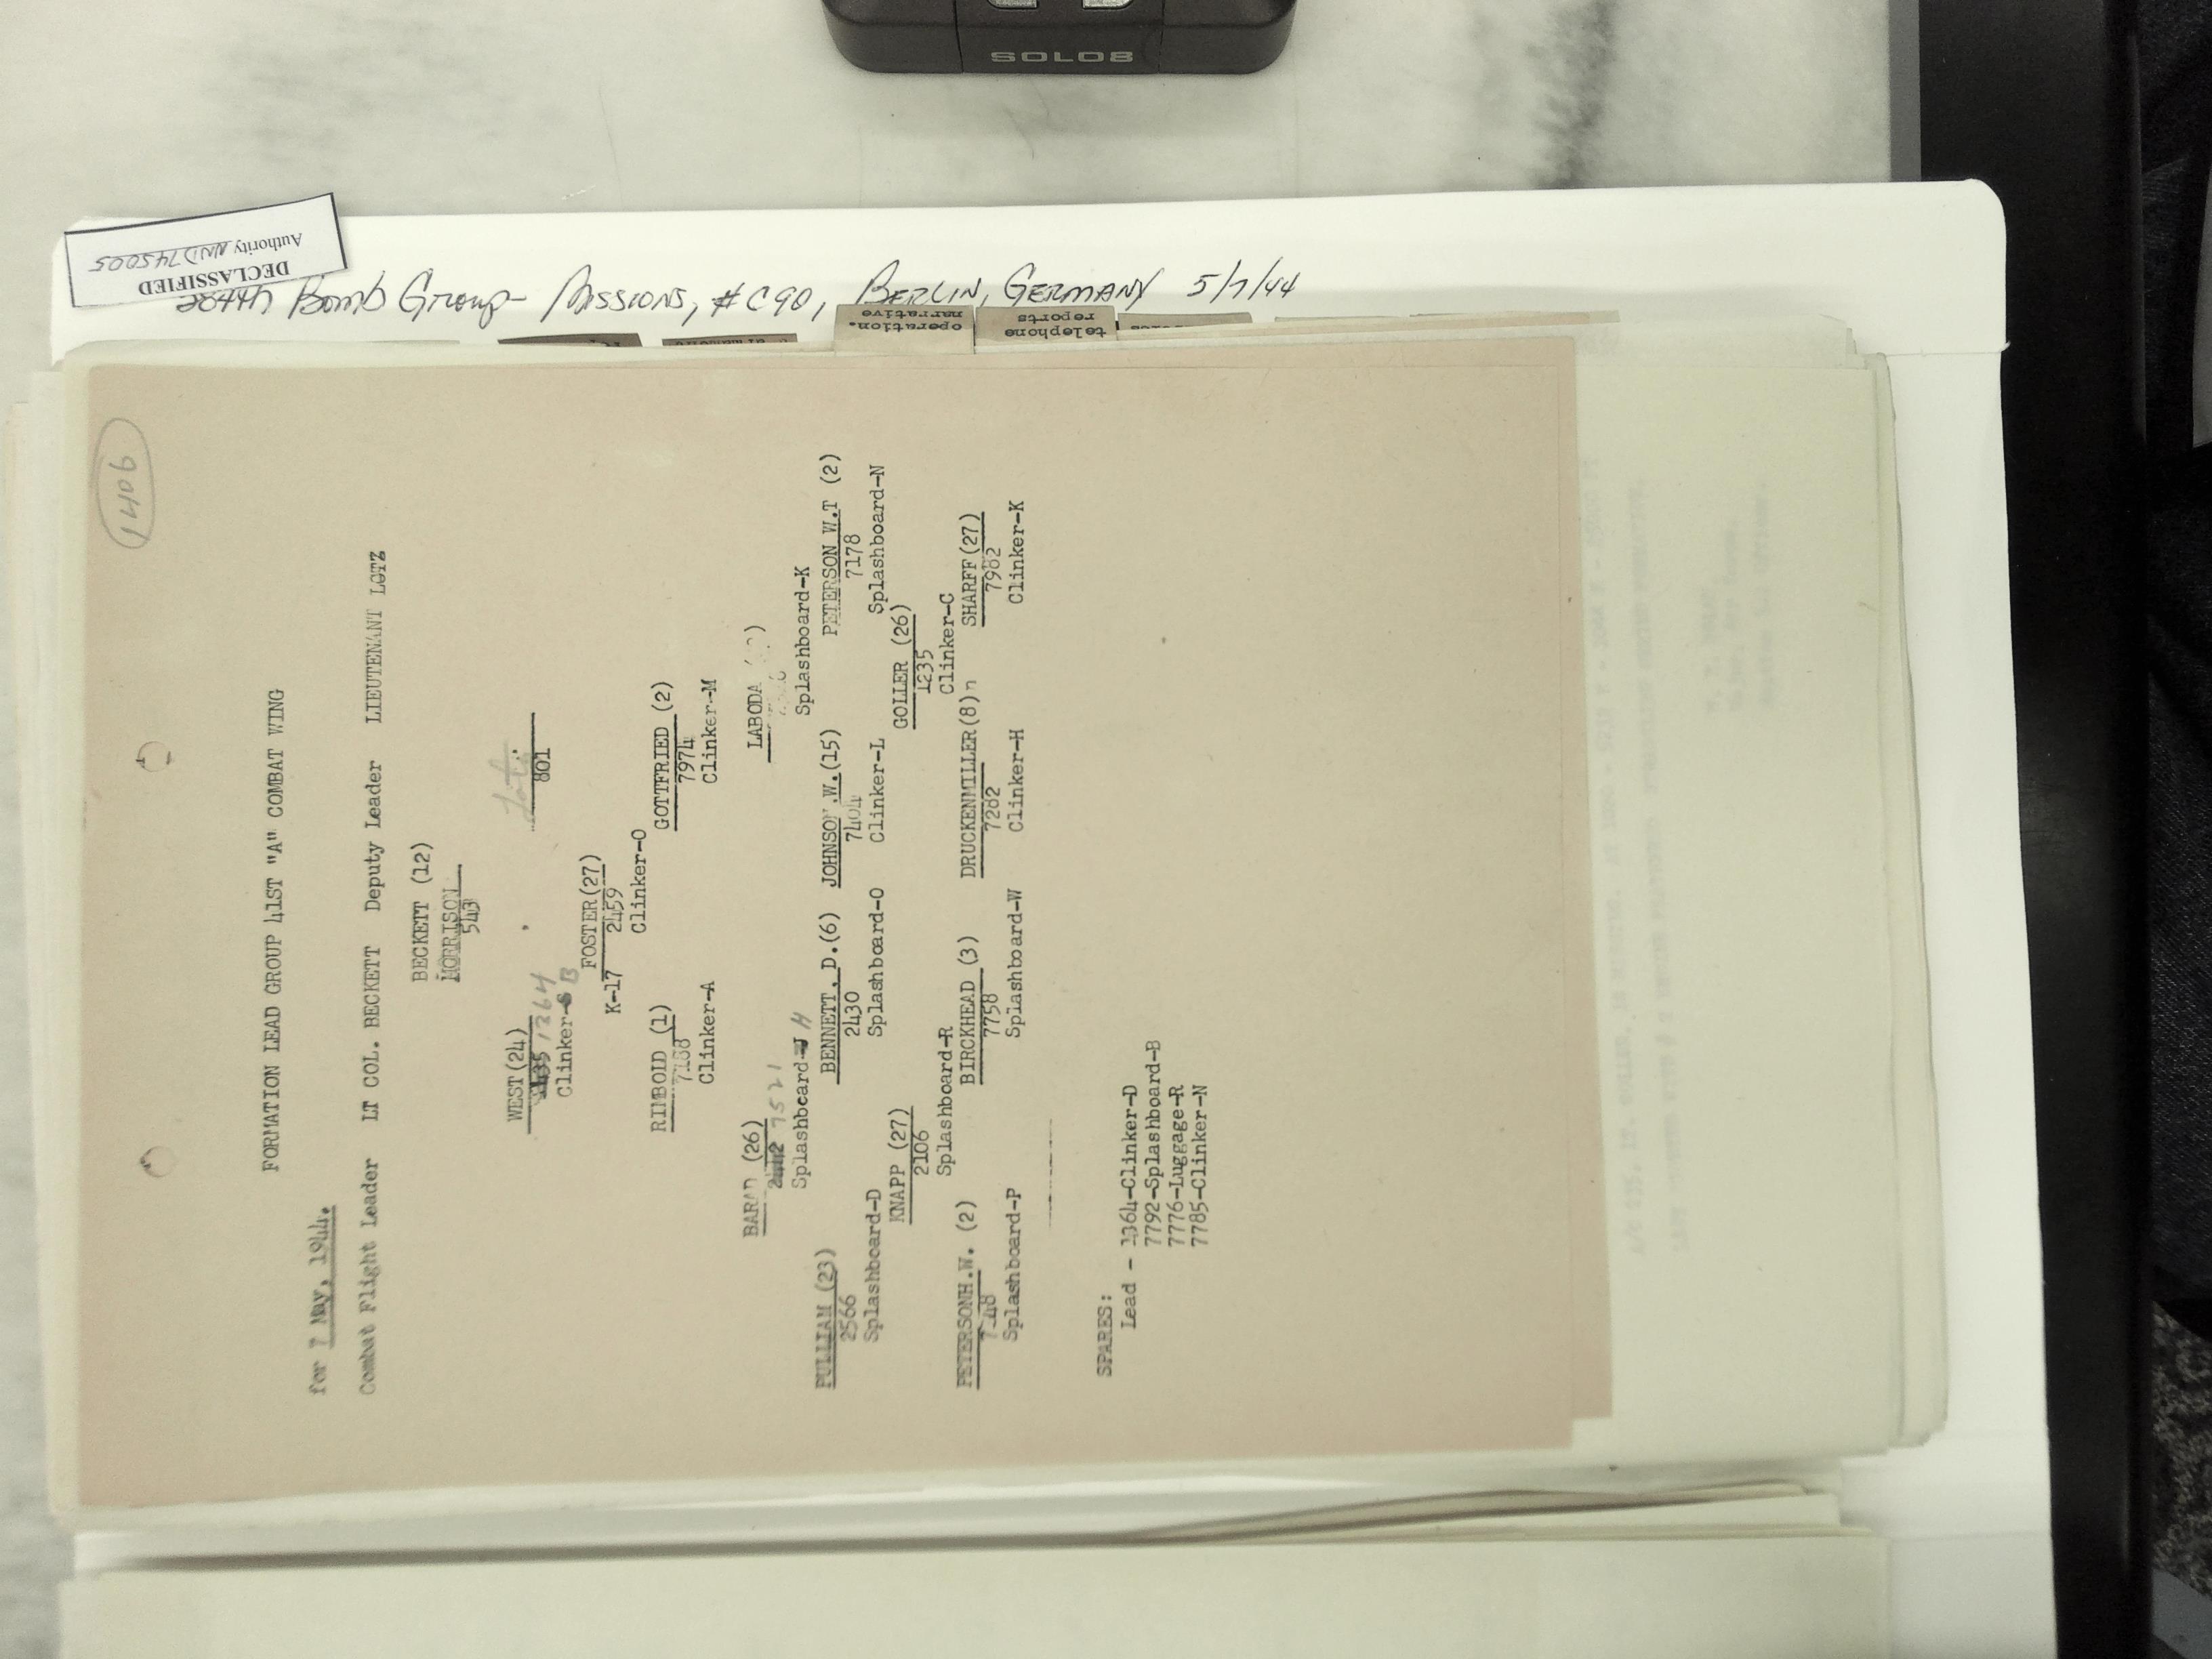 SOLO8
DECLASSIFIED
Authority NND 745005
384th Bomb Group- Missions, #C90, BERLIN, GERMANY 5/7/44
operation.
narrative
telephone
reports
1406
FORMATION LEAD GROUP 41ST "A" COMBAT WING
for 7 May, 1944.
Combat Flight Leader LT COL. BECKETT Deputy Leader LIEUTENANT LOTZ
BECKETT (12)
MORRISON
543
WEST(24)
1364 801
Clinker- B
FOSTER(27)
K-17 2459
Clinker-O
RIMBOLD (1) GOTTFRIED (2)
7974
Clinker-A Clinker-M
BARAD (26) LABODA
7521
Splashboard- H Splashboard-K
PULLIAM (23) BENNETT, D.(6) JOHNSON W.(15) PETERSON W.T (2)
2566 2430 7404 7178
Splashboard-D Splashboard-O Clinker-L Splashboard-N
KNAPP (27) GOLLER (26)
2106 1235
Splashboard-R Clinker-C
PETERSONH.W. (2) BIRCKHEAD (3) DRUCKENMILLER(8)n SHARFF(27)
7758 7282 7982
Splashboard-P Splashboard-W Clinker-H Clinker-K
SPARES:
Lead - 1364-Clinker-D
7792-Splashboard-B
7776-Luggage-R
7785-Clinker-N